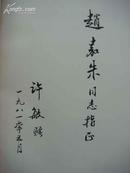 趙素朱同志指正
许敏歧
一九八一年五月